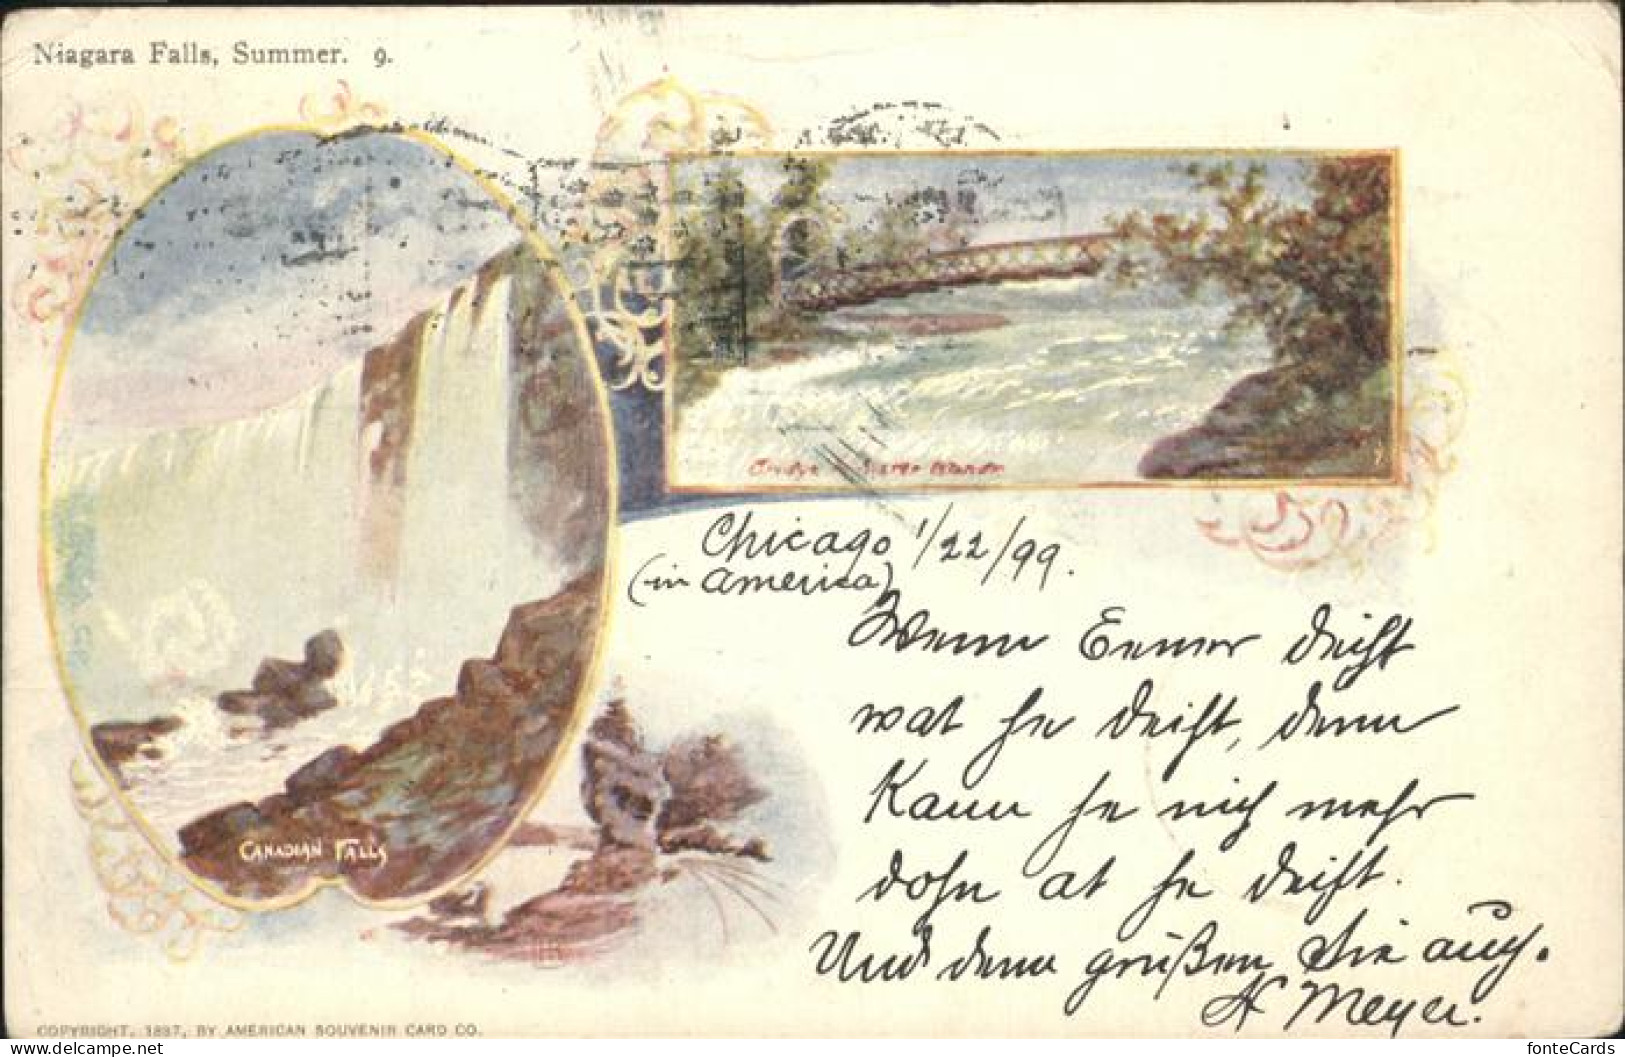 Niagara Falls, Summer. 9.
Bridge Sister Islands
Chicago 1/22/99.
(in America)
Wenn Eener deiht
wat he deiht, denn
Kann he nich mehr
dohn at he deiht.
Und denn grüßen Sie auch.
H Meyer.
CANADIAN FALLS
COPYRIGHT, 1897, BY AMERICAN SOUVENIR CARD CO.
delcampe.net
fonteCards